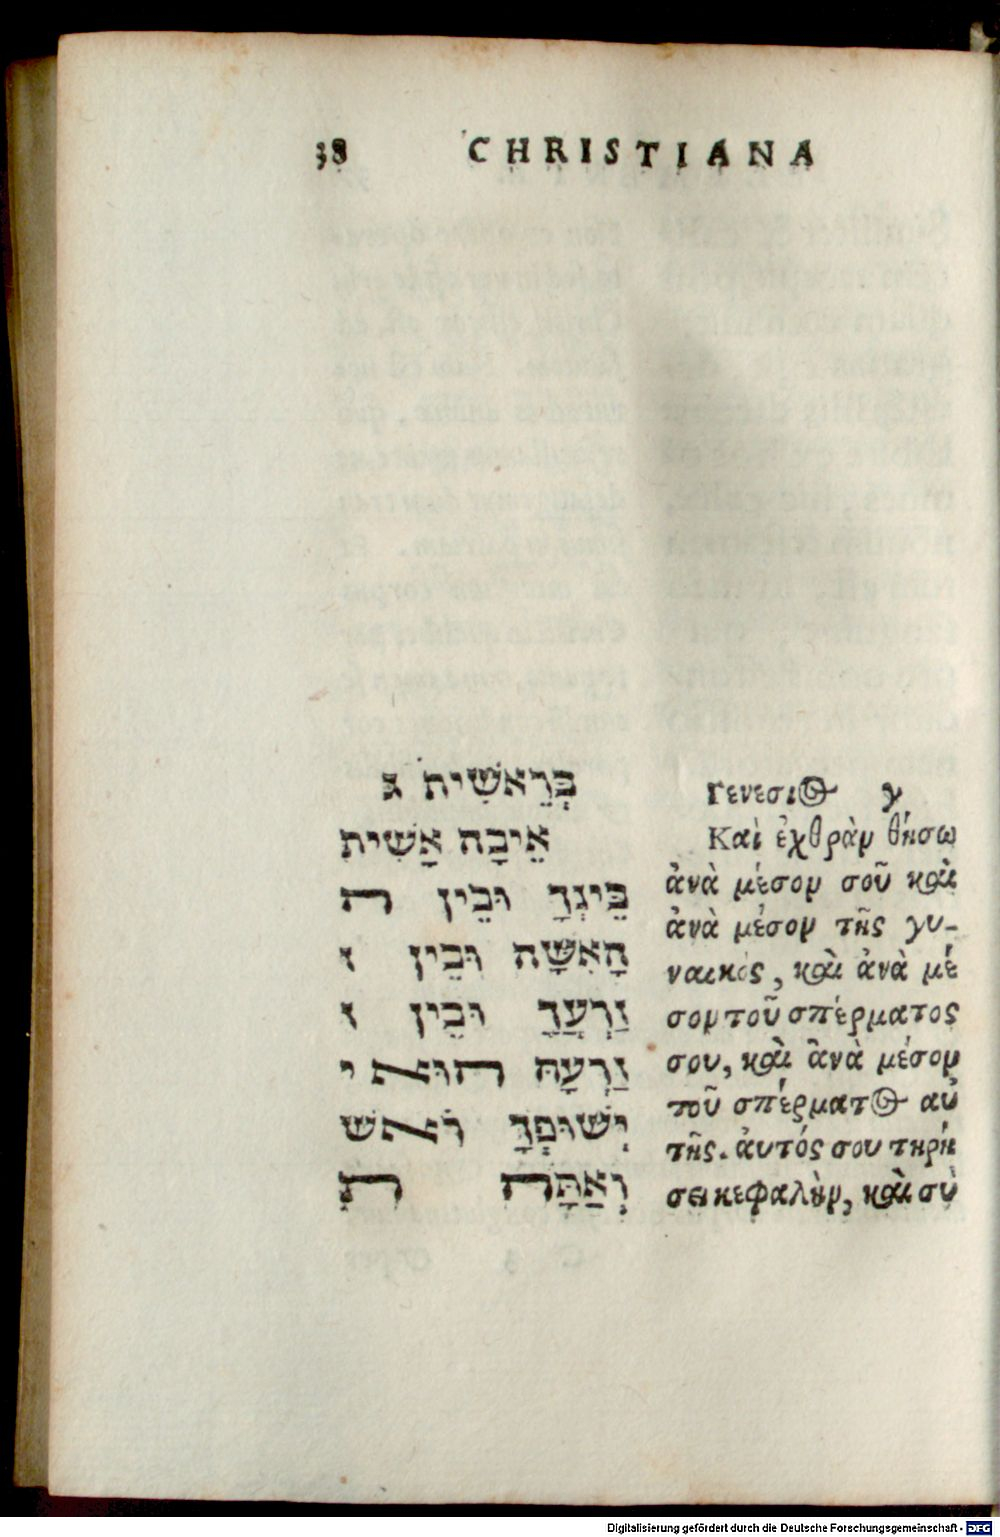 38 CHRISTIANA
בְּרֵאשִׁית ג
אֵיבָה אָשִׁית
בֵּינְךָ וּבֵין ה
הָאִשָּׁה וּבֵין ז
זַרְעֲךָ וּבֵין ז
זַרְעָהּ הוּא י
יְשׁוּפְךָ רֹאשׁ
וְאַתָּה ת
Γενεσιος γ
Καὶ ἐχθρὰν θήσω
ἀνὰ μέσον σοῦ καὶ
ἀνὰ μέσον τῆς γυ-
ναικός, καὶ ἀνὰ μέ
σον τοῦ σπέρματος
σου, καὶ ἀνὰ μέσον
τοῦ σπέρματος αὐ
τῆς. ἀυτός σου τηρή
σει κεφαλὴν, καὶ σὺ
Digitalisierung gefördert durch die Deutsche Forschungsgemeinschaft - DFG